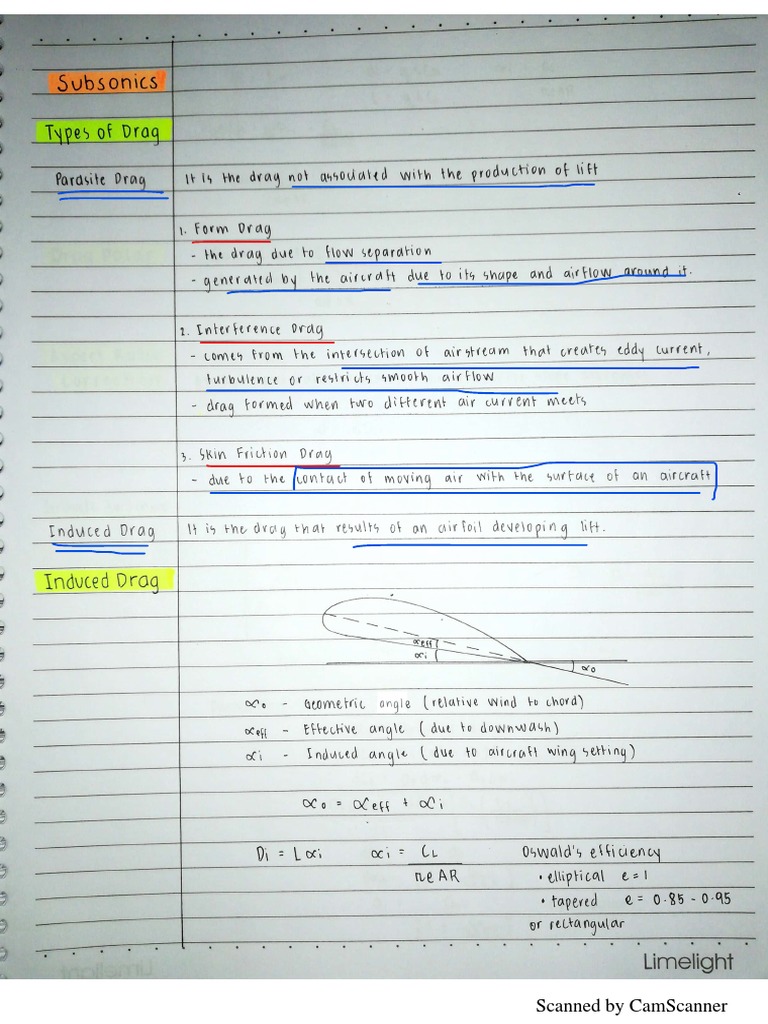 Subsonics
Types of Drag
Parasite Drag It is the drag not associated with the production of lift
1. Form Drag
- the drag due to flow separation
- generated by the aircraft due to its shape and airflow around it.
2. Interference Drag
- comes from the intersection of airstream that creates eddy current,
turbulence or restricts smooth airflow
- drag formed when two different air current meets
3. Skin Friction Drag
- due to the contact of moving air with the surface of an aircraft
Induced Drag It is the drag that results of an airfoil developing lift.
Induced Drag
αeff
αi
αo
αo - Geometric angle (relative wind to chord)
αeff - Effective angle (due to downwash)
αi - Induced angle (due to aircraft wing setting)
αo = αeff + αi
Di = Lαi αi = CL Oswald's efficiency
πeAR • elliptical e=1
• tapered e = 0.85 - 0.95
or rectangular
Limelight
Scanned by CamScanner